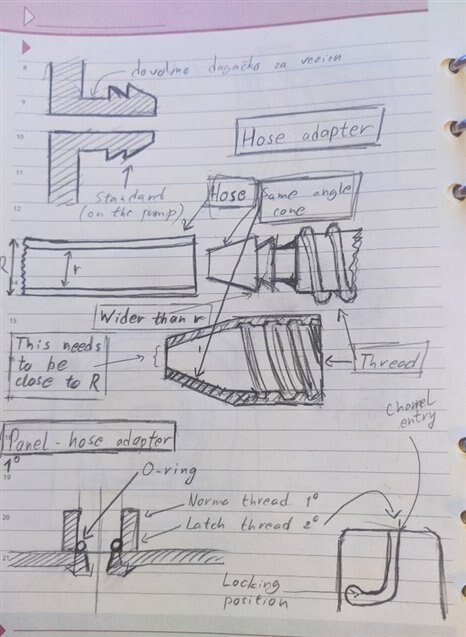 8
dovoljno dugačko za vezicu
9
10
Hose adapter
11
Standard
(on the pump)
12
Hose
Same angle
cone
R
r
Wider than r
15
This needs
to be
close to R
Thread
Channel
entry
Panel-hose adapter
1°
O-ring
19
Norma thread 1°
20
Latch thread 2°
21
Locking
position